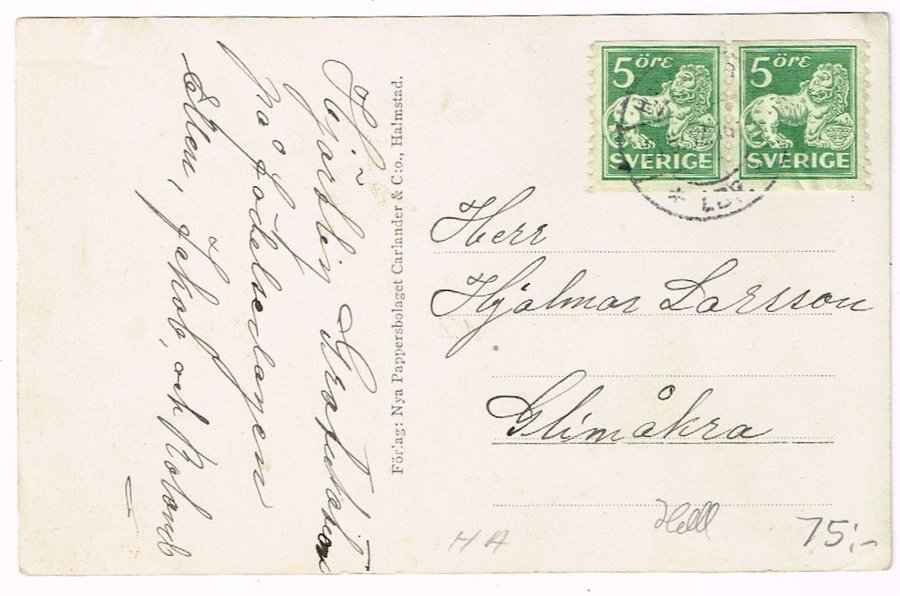 Hjärtlig Gratulation
på födelsedagen
Ellen, Jakob, och Roland
Förlag: Nya Pappersbolaget Carlander & C:o., Halmstad.
5 öre
SVERIGE
5 öre
SVERIGE
Herr
Hjalmar Larsson
Glimåkra
HA
75:-